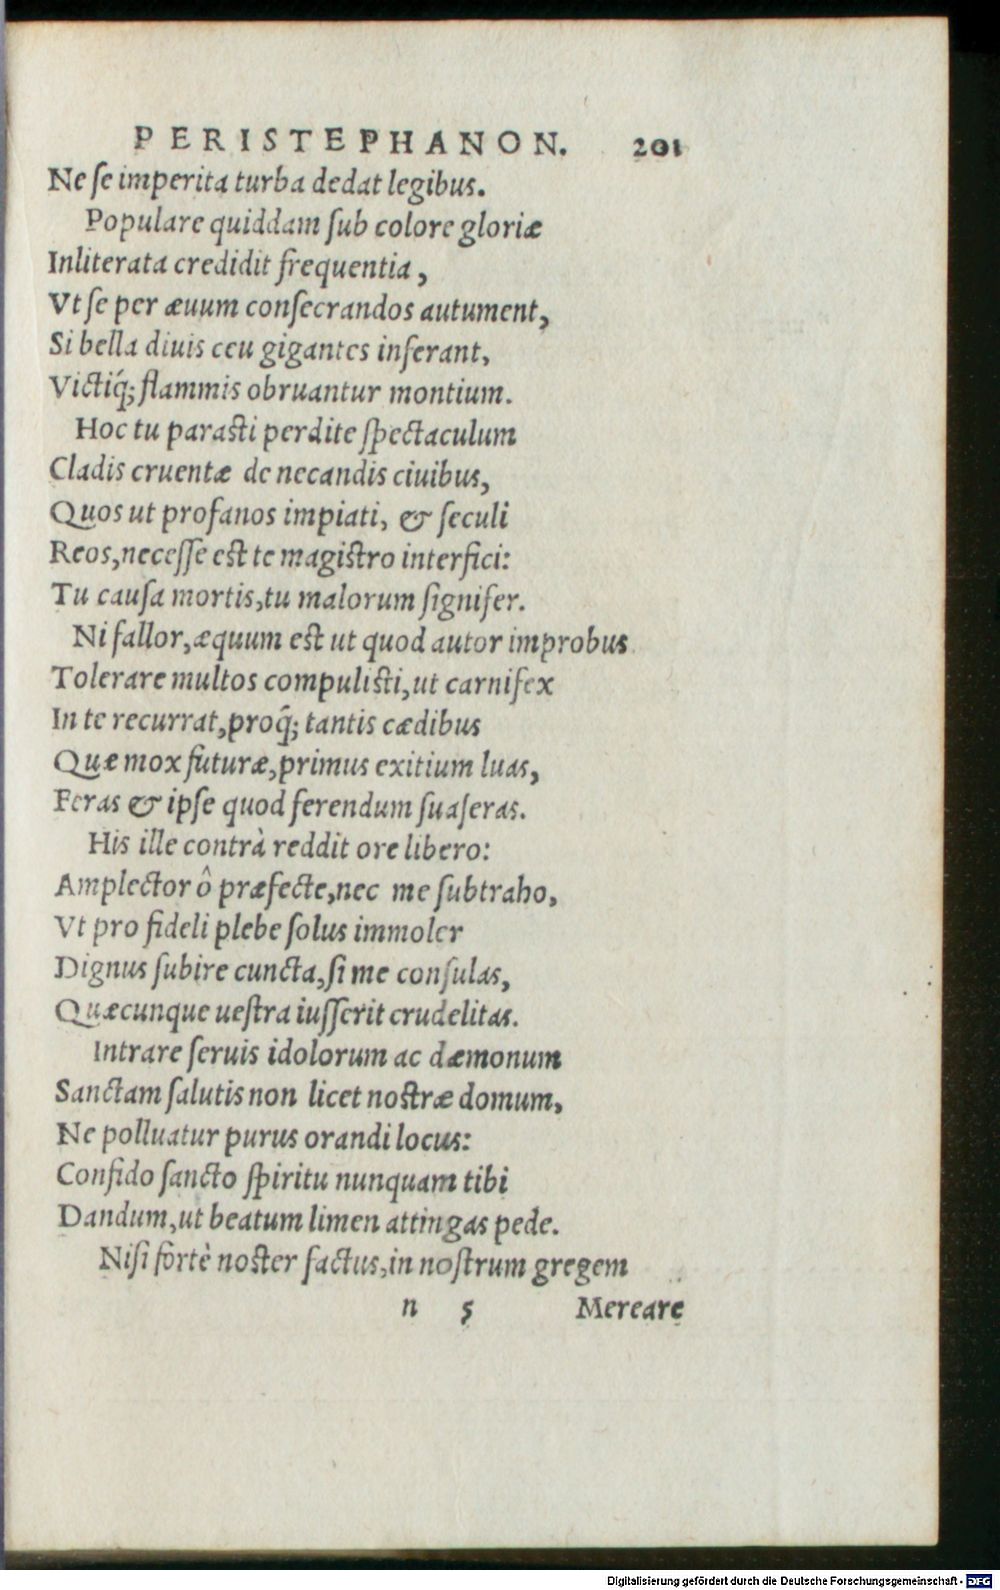 PERISTEPHANON. 201
Ne ſe imperita turba dedat legibus.
Populare quiddam ſub colore gloriæ
Inliterata credidit frequentia,
Vt ſe per æuum conſecrandos autument,
Si bella diuis ceu gigantes inferant,
Victiq́; flammis obruantur montium.
Hoc tu paraſti perdite ſpectaculum
Cladis cruentæ de necandis ciuibus,
Quos ut profanos impiati, & ſeculi
Reos, neceſſe eſt te magiſtro interfici:
Tu cauſa mortis, tu malorum ſignifer.
Ni fallor, æquum eſt ut quod autor improbus
Tolerare multos compuliſti, ut carnifex
In te recurrat, proq̃; tantis cædibus
Quæ mox futuræ, primus exitium luas,
Feras & ipſe quod ferendum ſuaſeras.
His ille contrà reddit ore libero:
Amplector ô præfecte, nec me ſubtraho,
Vt pro fideli plebe ſolus immoler
Dignus ſubire cuncta, ſi me conſulas,
Quæcunque ueſtra iuſſerit crudelitas.
Intrare ſeruis idolorum ac dæmonum
Sanctam ſalutis non licet noſtræ domum,
Ne polluatur purus orandi locus:
Confido ſancto ſpiritu nunquam tibi
Dandum, ut beatum limen attingas pede.
Niſi fortè noſter factus, in noſtrum gregem
n 5 Mereare
Digitalisierung gefördert durch die Deutsche Forschungsgemeinschaft - DFG